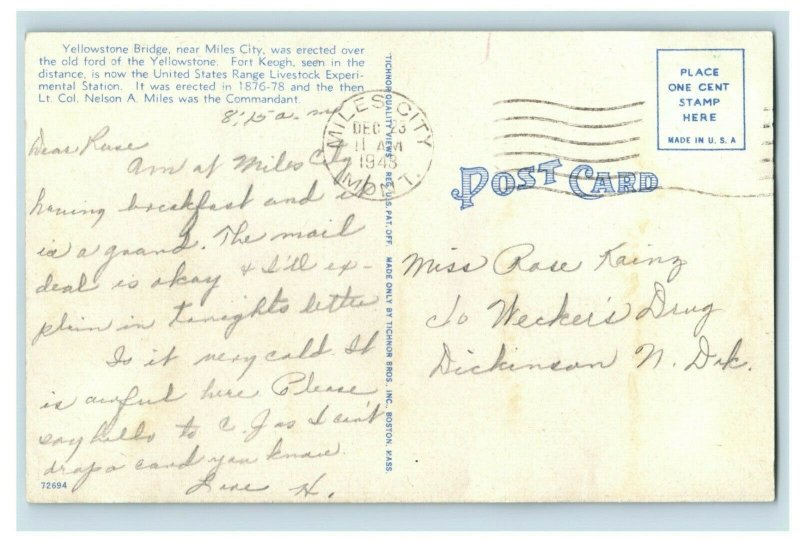 Yellowstone Bridge, near Miles City, was erected over
the old ford of the Yellowstone. Fort Keogh, seen in the
distance, is now the United States Range Livestock Experi-
mental Station. It was erected in 1876-78 and the then
Lt. Col. Nelson A. Miles was the Commandant
8:15 a. m.
Dear Rose
Am at Miles City
having breakfast and it
is a grand. The mail
deal is okay & I'll ex-
plain in tonights letter
Is it very cold. It
is awful here. Please
say hello to C. J as I can't
drop a card you know.
Love H.
72694
TICHNOR QUALITY VIEWS REG. U.S. PAT. OFF. MADE ONLY BY TICHNOR BROS., INC., BOSTON, MASS.
MILES CITY
DEC 23
11 AM
1943
MONT.
PLACE
ONE CENT
STAMP
HERE
MADE IN U. S. A
POST CARD
Miss Rose Kainz
c/o Wecker's Drug
Dickinson N. Dak.